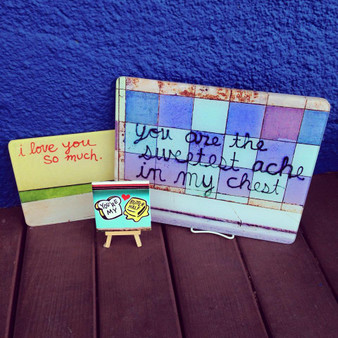 i love you
so much.
You are the
sweetest ache
in my chest
YOU'RE
MY
BUTTER
HALF